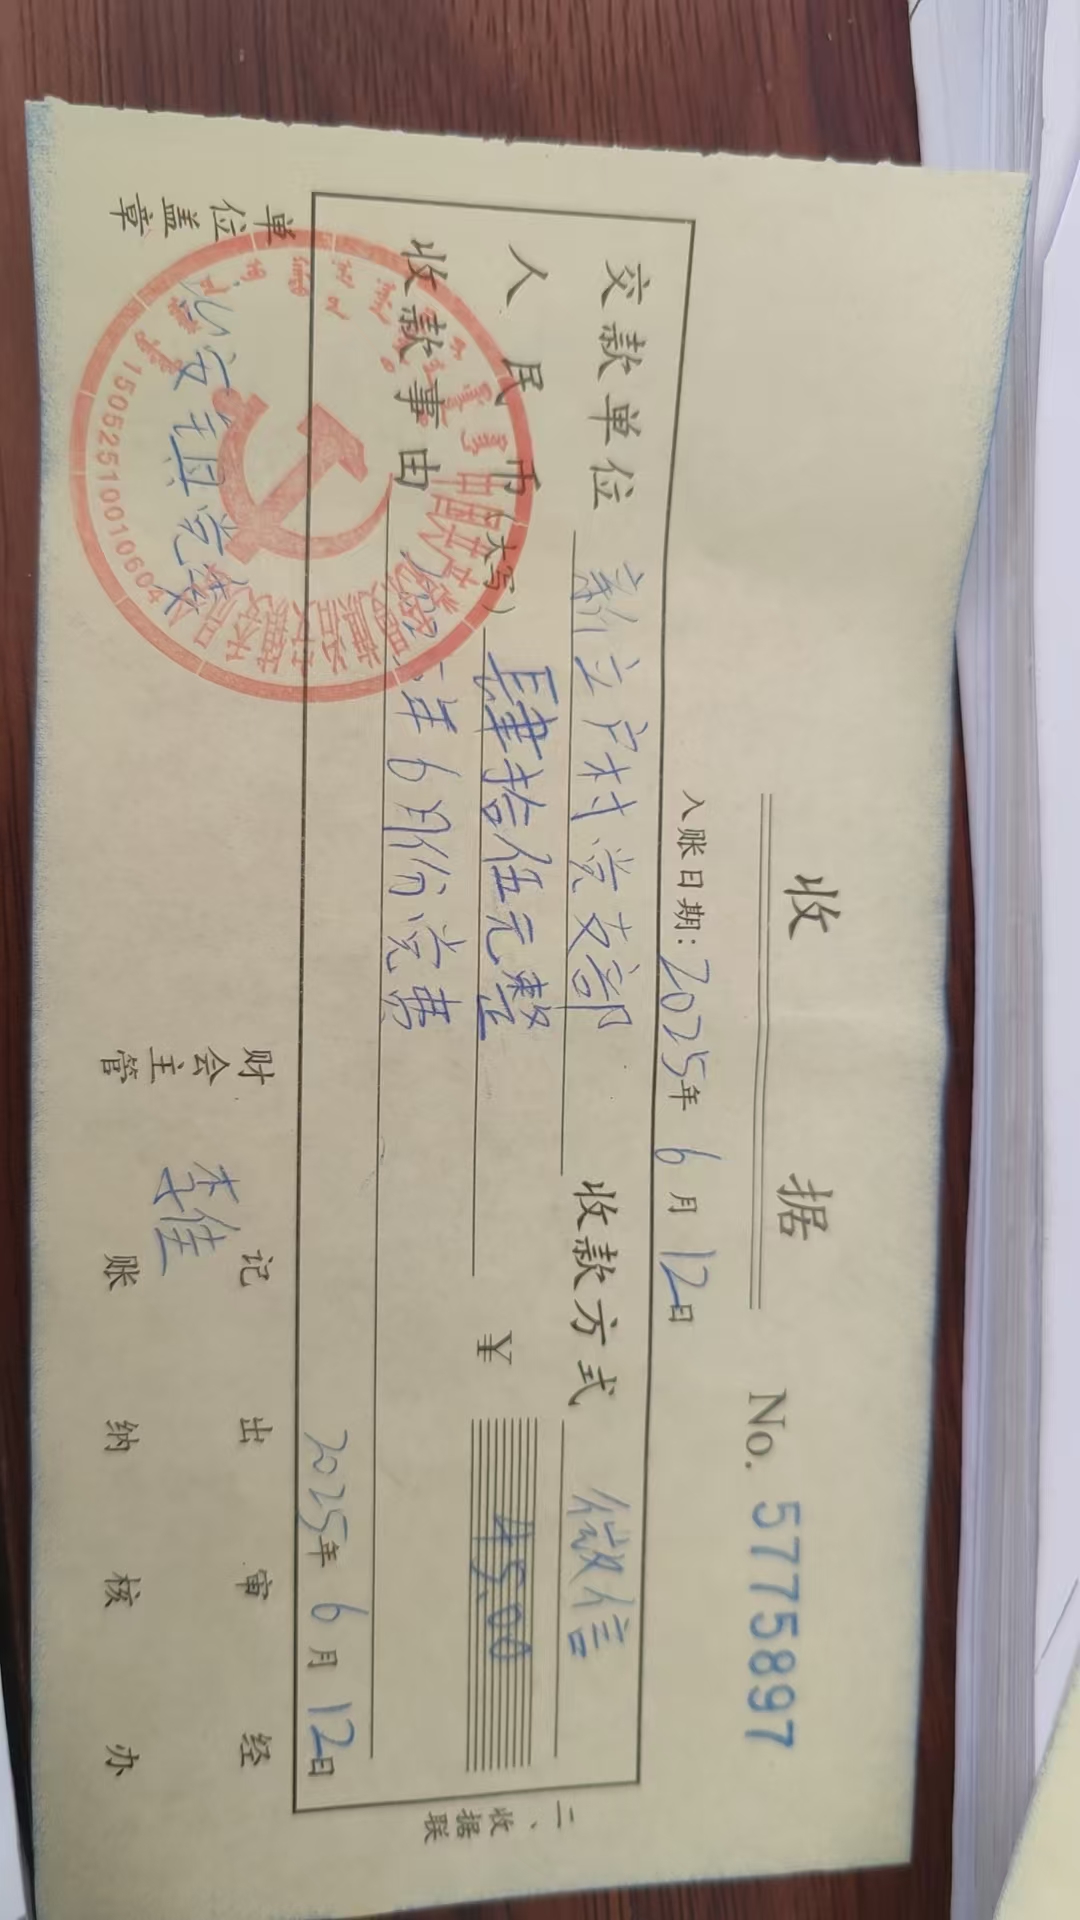 收 据
No. 5775897
入账日期：2025年 6 月 12日
交款单位 新立屯村党支部 收款方式 微信
人民币（大写） 肆拾伍元整 ￥ 45.00
收款事由 年6月份党费
2025年 6 月 12日
二、收据联
单位盖章 财会主管 记账 出纳 审核 经办
李佳
1505251001060